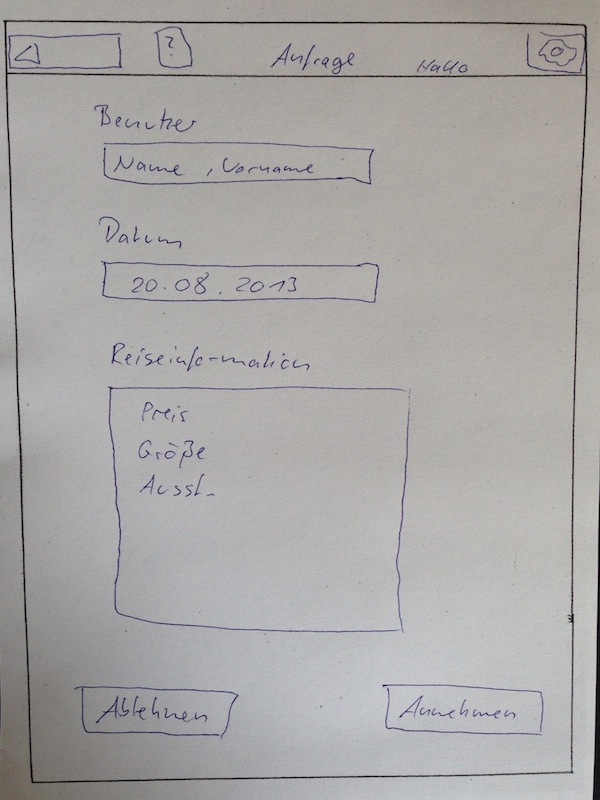 ? Anfrage Hallo
Benutzer
Name, Vorname
Datum
20.08.2013
Reiseinformation
Preis
Größe
Ausst.
Ablehnen Annehmen